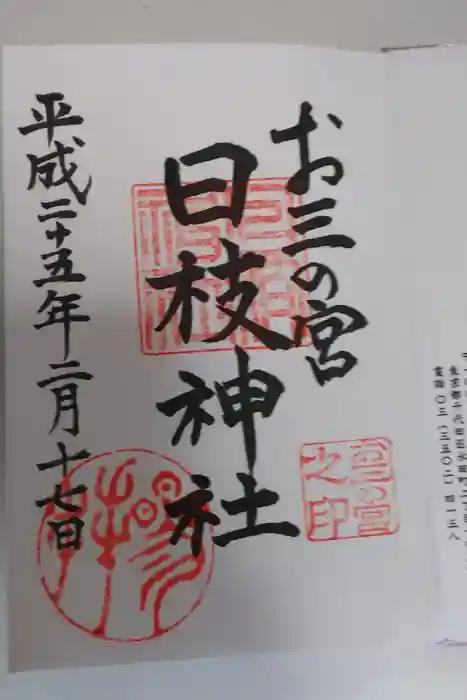 お三の宮
日枝神社
平成二十五年二月十七日
三の宮
之印